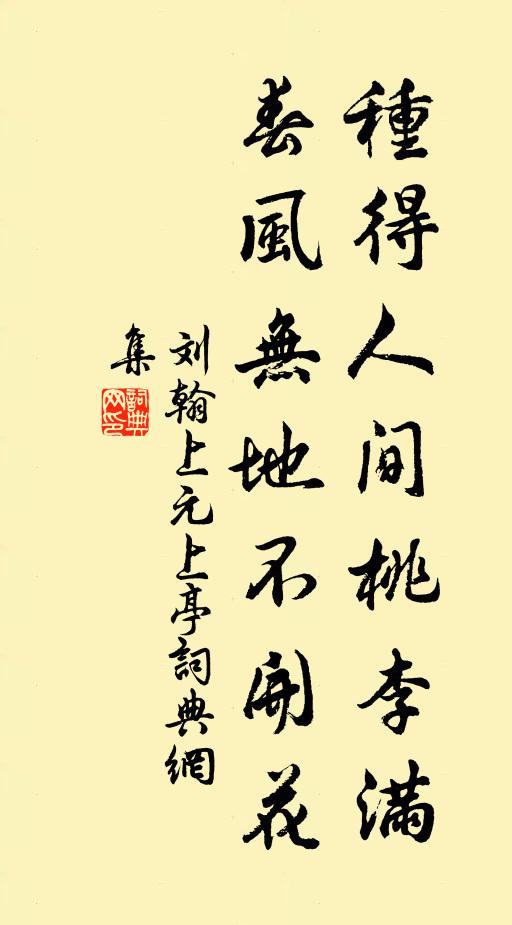 種得人间桃李满
春風無地不開花
刘翰上元上亭詞典網
集
詞典网印